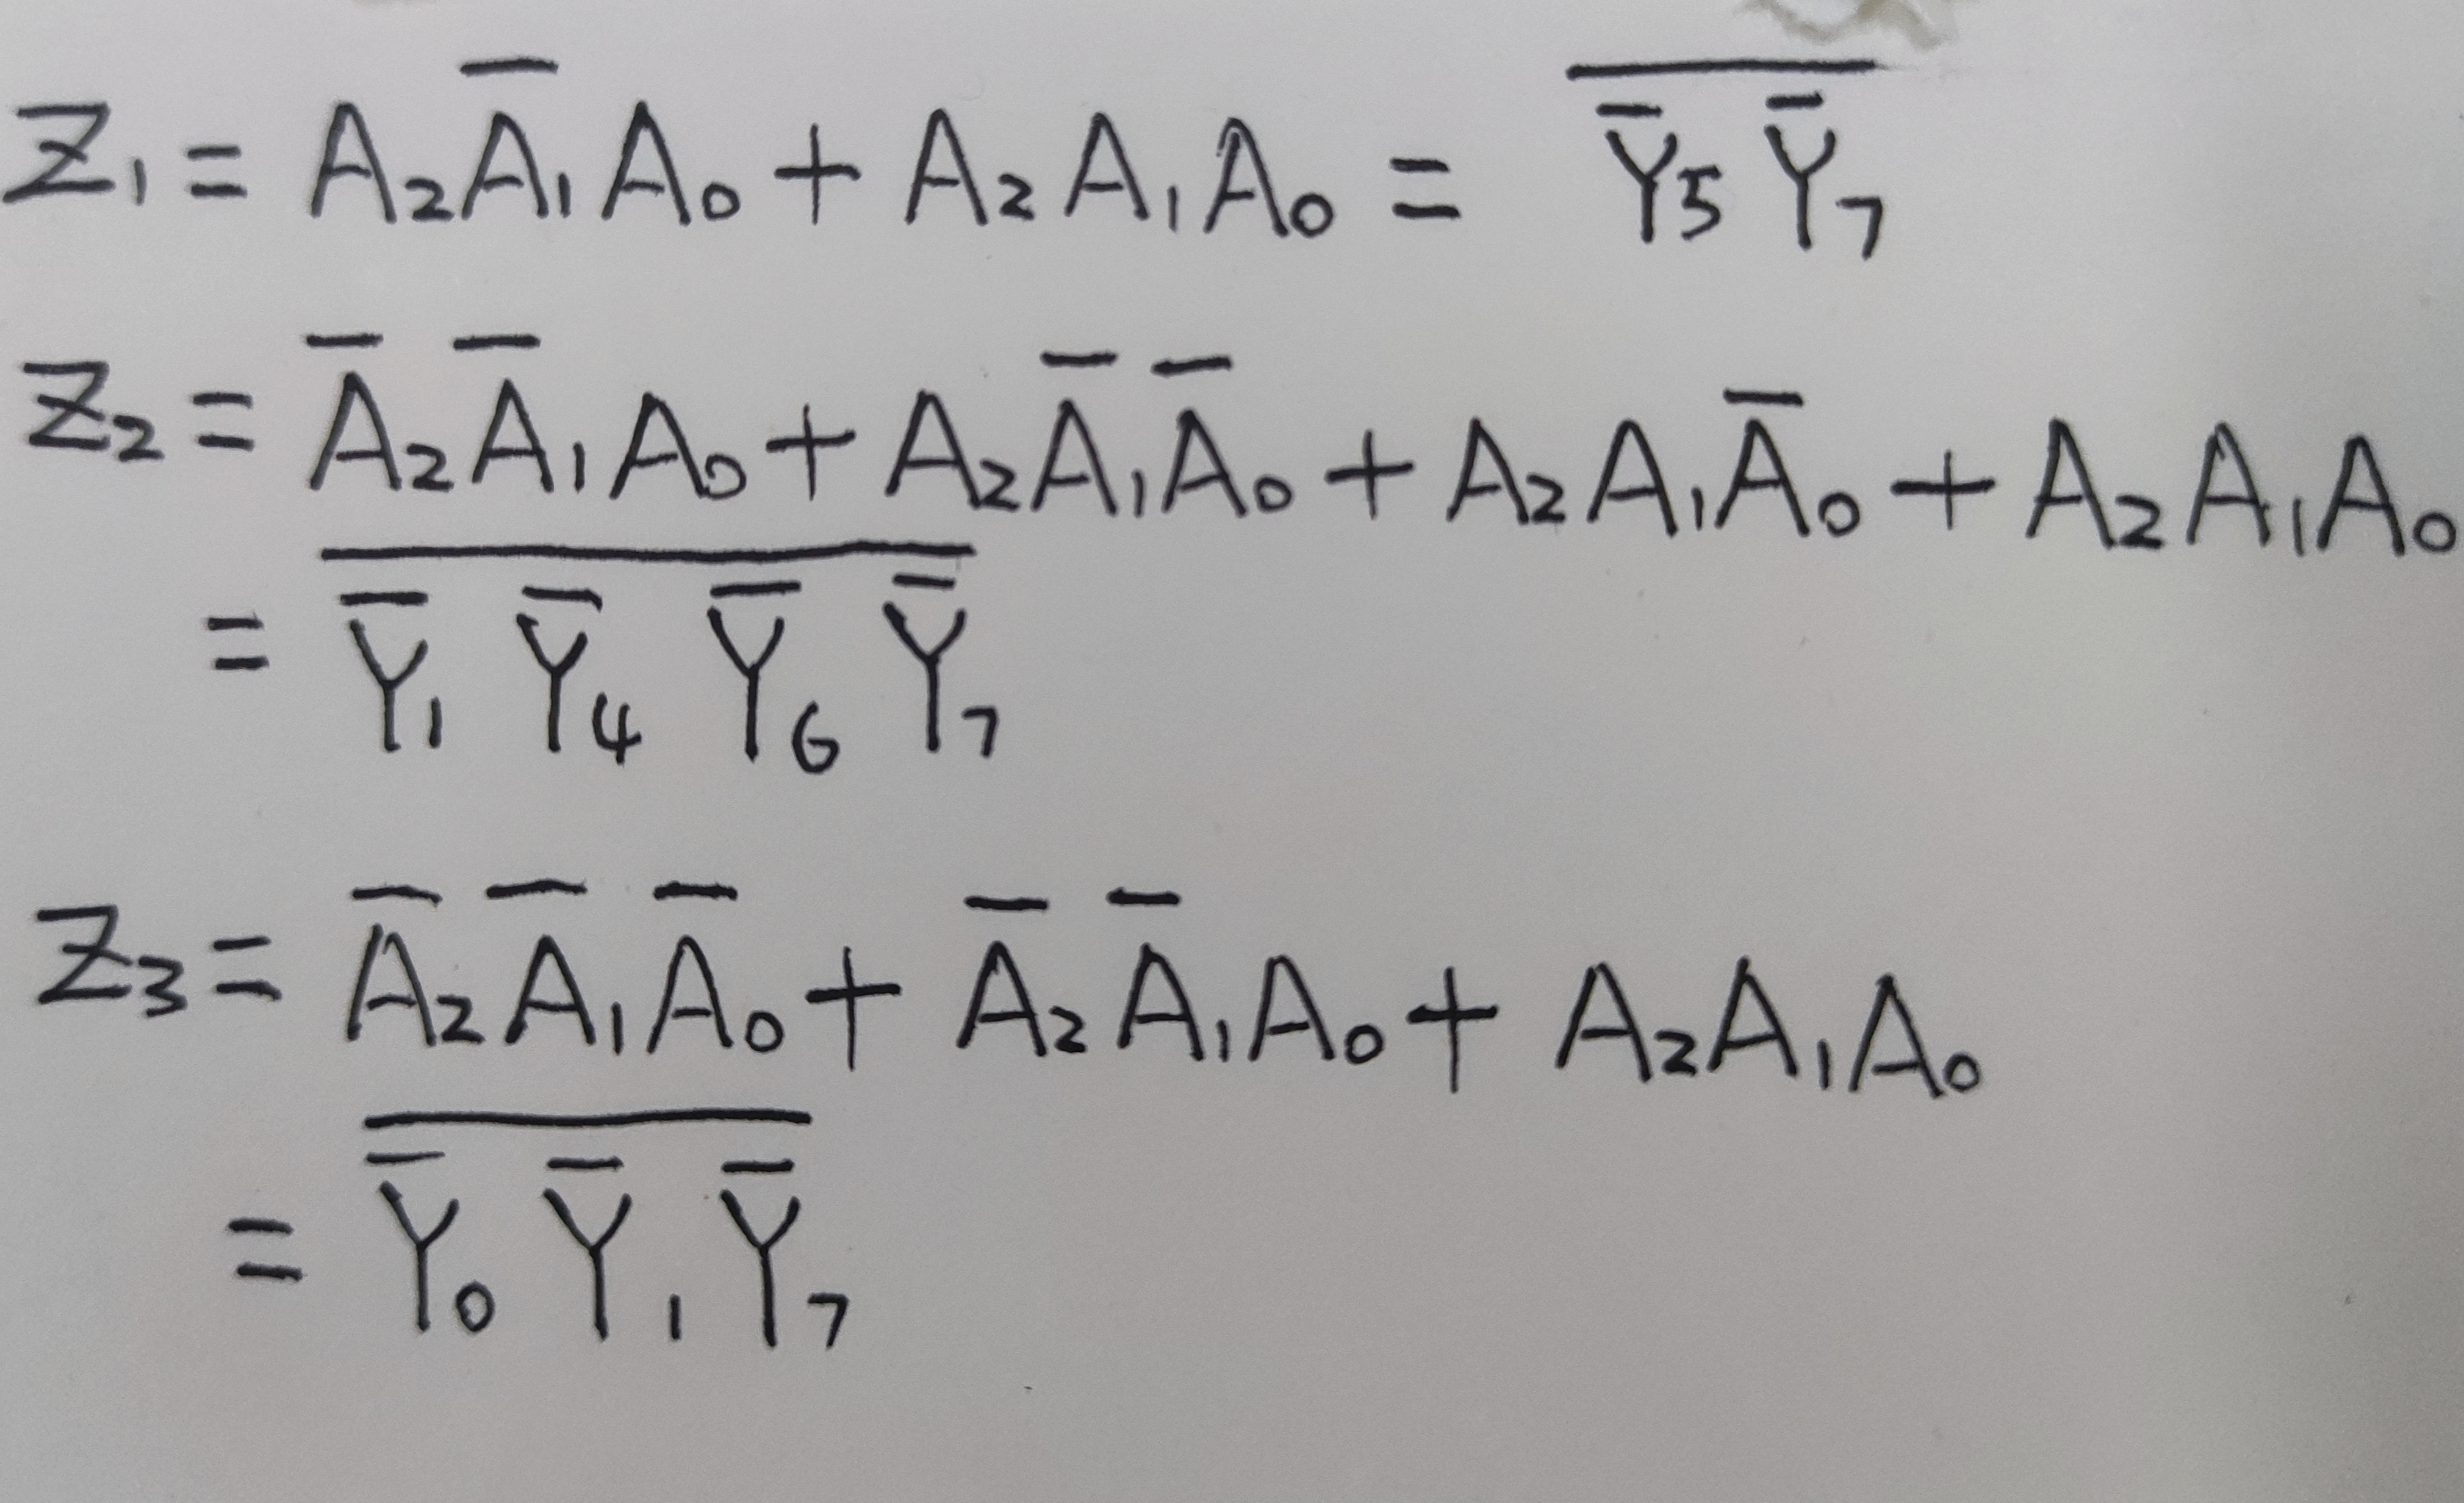 Z₁ = A₂A̅₁A₀ + A₂A₁A₀ = \overline{Y̅₅ Y̅₇}
Z₂ = A̅₂A̅₁A₀ + A₂A̅₁A̅₀ + A₂A₁A̅₀ + A₂A₁A₀
= \overline{Y̅₁ Y̅₄ Y̅₆ Y̅₇}
Z₃ = A̅₂A̅₁A̅₀ + A̅₂A̅₁A₀ + A₂A₁A₀
= \overline{Y̅₀ Y̅₁ Y̅₇}